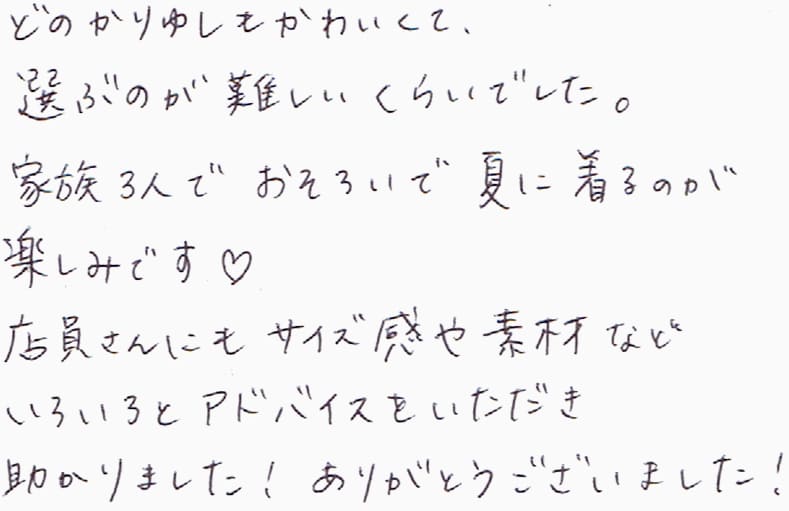 どのかりゆしもかわいくて、
選ぶのが難しいくらいでした。
家族3人で おそろいで 夏に着るのが
楽しみです♡
店員さんにも サイズ感や素材など
いろいろとアドバイスをいただき
助かりました! ありがとうございました!